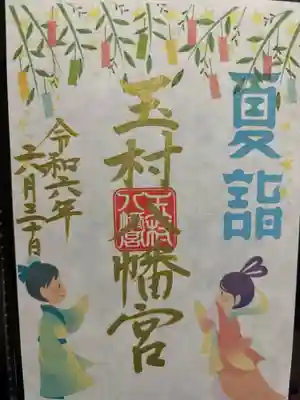 夏詣
玉村八幡宮
玉村八幡宮
令和六年
六月三十日